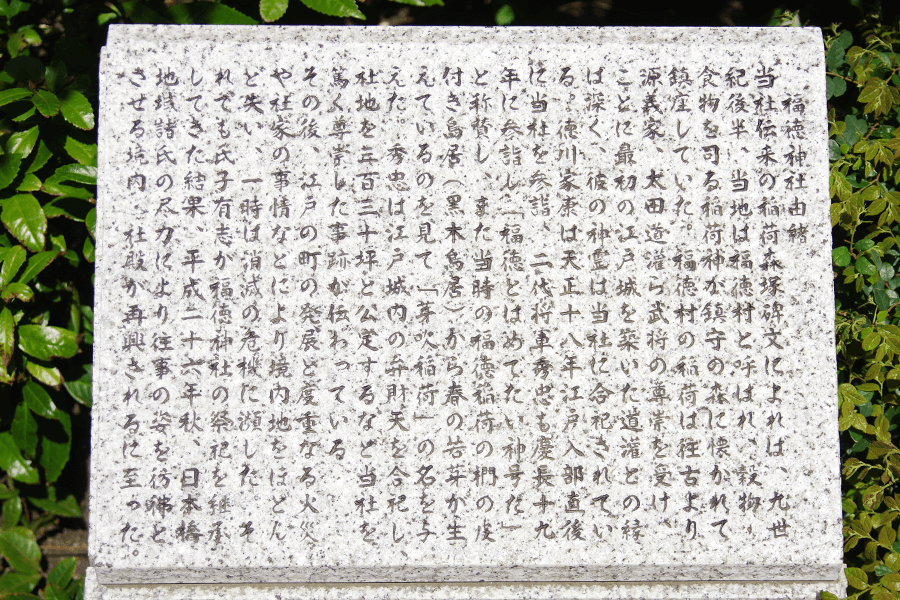 福徳神社由緒
当社伝来の稲荷森塚碑文によれば、九世
紀後半、当地は福徳村と呼ばれ、穀物・
食物を司る稲荷神が鎮守の森に懐かれて
鎮座していた。福徳村の稲荷は往古より
源義家、太田道灌ら武将の尊崇を受け、
ことに最初の江戸城を築いた道灌との縁
は深く、彼の神霊は当社に合祀されてい
る。徳川家康は天正十八年江戸入部直後
に当社を参詣、二代将軍秀忠も慶長十九
年に参詣し「福徳とはめでたい神号だ」
と称賛し、また当時の福徳稲荷の椚の皮
付き鳥居(黒木鳥居)から春の若芽が生
えているのを見て「芽吹稲荷」の名を与
えた。秀忠は江戸城内の弁財天を合祀し、
社地を三百三十坪と公定するなど当社を
篤く尊崇した事跡が伝わっている。
その後、江戸の町の発展と度重なる火災
や社家の事情などにより境内地をほとん
ど失い、一時は消滅の危機に瀕した。そ
れでも氏子有志が福徳神社の祭祀を継承
してきた結果、平成二十六年秋、日本橋
地域諸氏の尽力により往事の姿を彷彿と
させる境内、社殿が再興されるに至った。